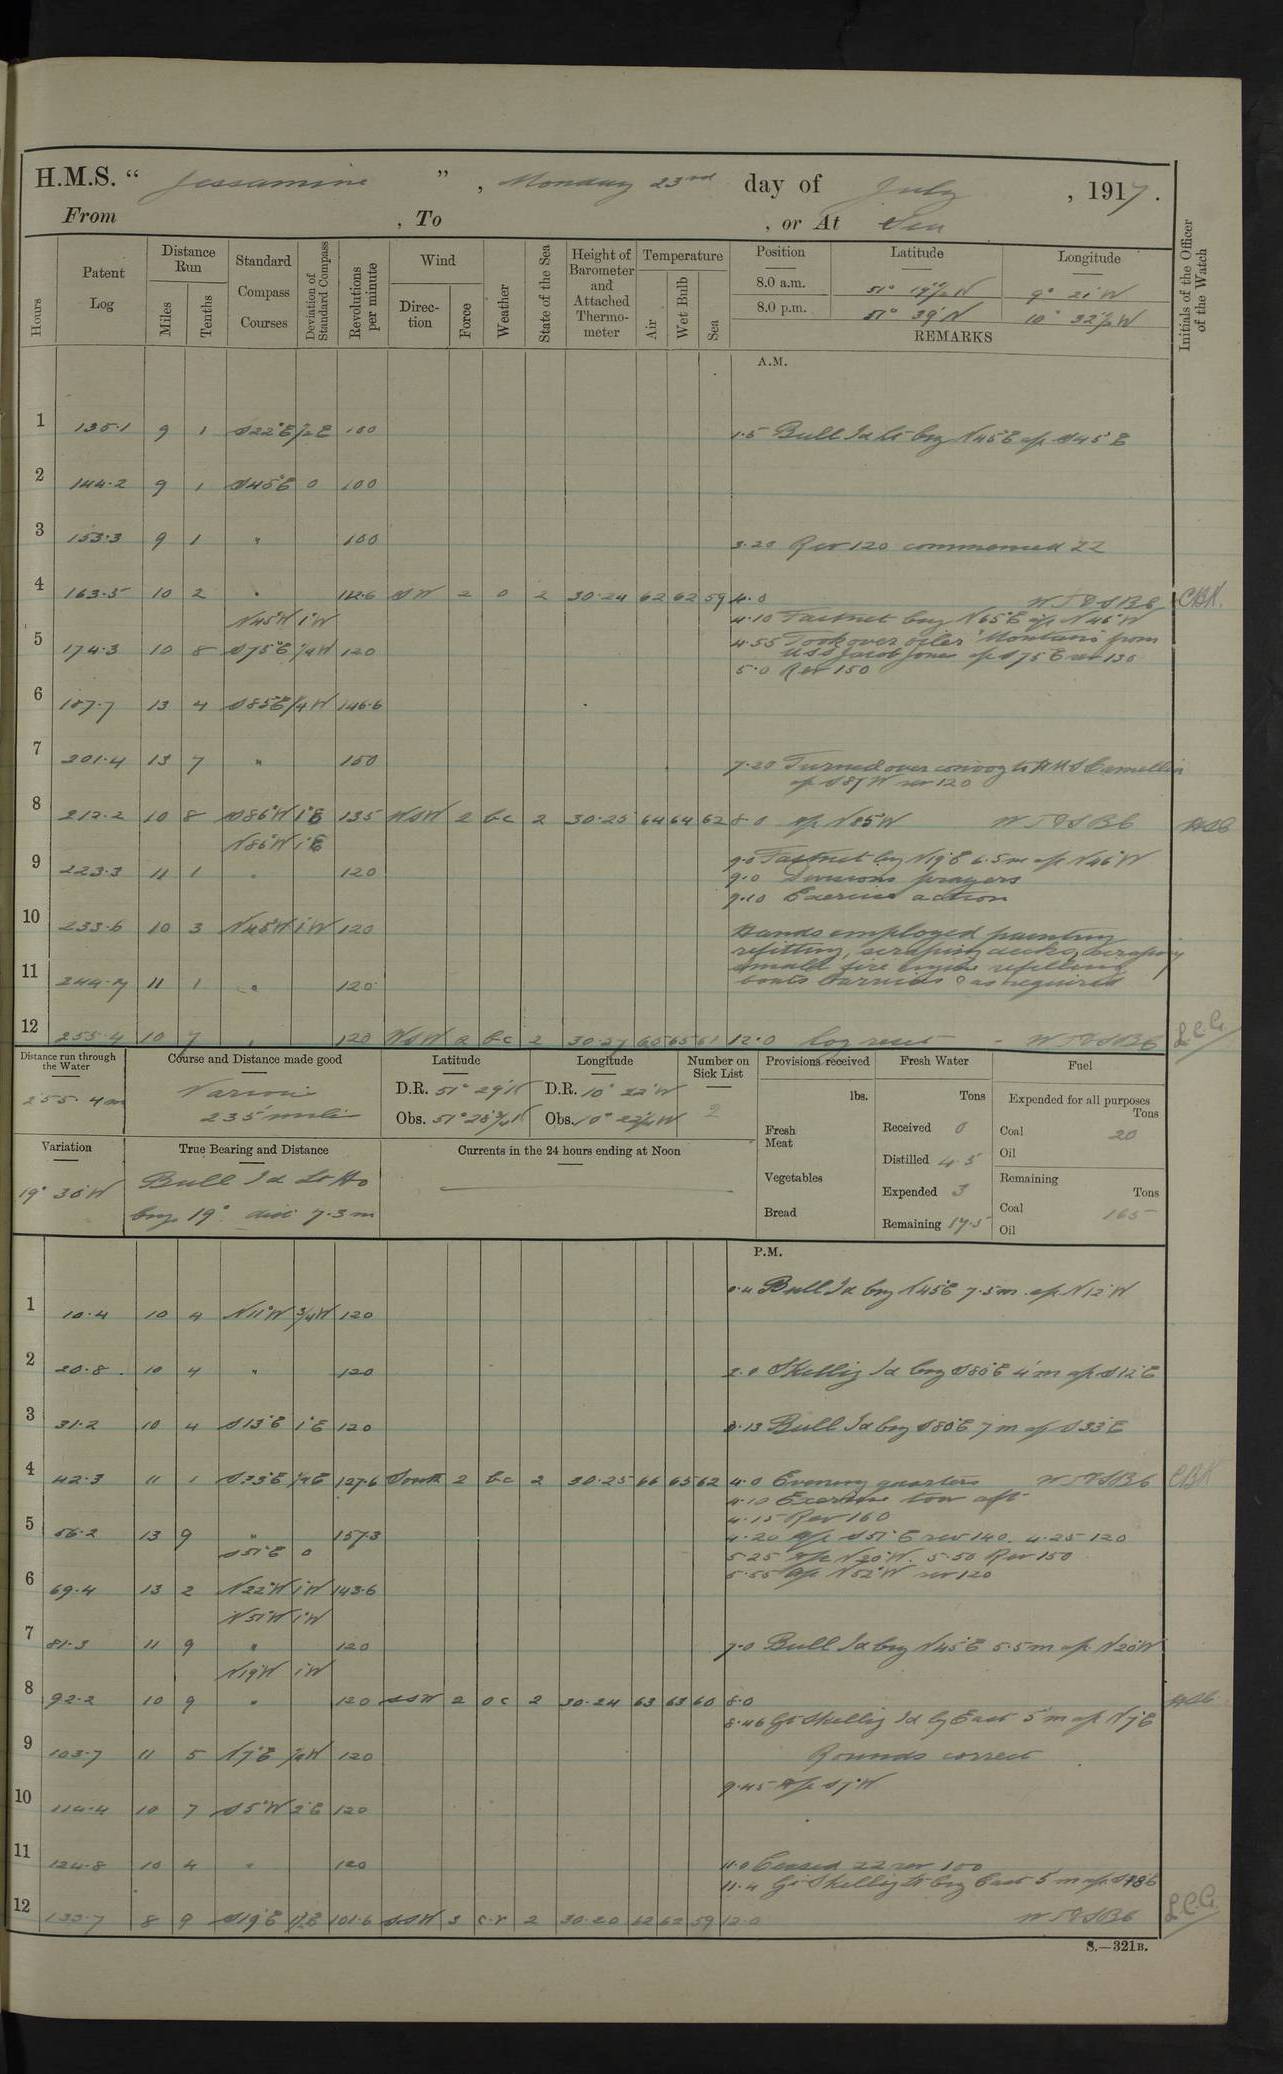 H.M.S. “ Jessamine ” , Monday 23rd day of July , 1917.
From , To , or At Sea
Hours
Patent Log
Distance Run
Miles
Tenths
Standard Compass Courses
Deviation of Standard Compass
Revolutions per minute
Wind
Direction
Force
Weather
State of the Sea
Height of Barometer and Attached Thermometer
Temperature
Air
Wet Bulb
Sea
Position Latitude Longitude
8.0 a.m. 51° 19½ N 9° 21 W
8.0 p.m. 51° 39 N 10° 32½ W
REMARKS
Initials of the Officer of the Watch
A.M.
1 135.1 9 1 S22°E ½E 100
1.5 Bull Id Lt brg N45°E a/c S45°E
2 144.2 9 1 S45°E 0 100
3 153.3 9 1 " 100
3.20 Rev 120 commenced ZZ
4 163.5 10 2 " 112.6 SW 2 O 2 30.24 62 62 59 4.0 CBK.
N45°W 1°W
4.10 Fastnet brg N65°E a/c N46°W
5 174.3 10 8 S75°E ¼W 120
4.55 Took over oiler 'Montana' from
USS Jacob Jones a/c S75E rev 130
5.0 Rev 150
6 187.7 13 4 S85°E ¼W 146.6
7 201.4 13 7 " 150
7.20 Turned over convoy to HMS Camellia
a/c S87W rev 120
8 212.2 10 8 S86°W 1°E 135 WSW 2 bc 2 30.25 64 64 62 8.0 a/c N85W
N86°W 1°E
9 223.3 11 1 " 120
9.0 Fastnet brg N19°E 6.5m a/c N46°W
9.0 Divisions prayers
9.10 Exercise action
10 233.6 10 3 N45°W 1°W 120
Hands employed painting
refitting, scraping decks, scraping
small fire engine refilling
boats barricos & as required
11 244.7 11 1 " 120
12 255.4 10 7 " 120 WSW 2 bc 2 30.27 65 65 61 12.0 log reset LCG
Distance run through the Water
255.4m
Course and Distance made good
Various
235 miles
Latitude
D.R. 51° 29 N
Obs. 51° 28¾ N
Longitude
D.R. 10° 22 W
Obs. 10° 22¼ W
Number on Sick List
2
Provisions received
lbs.
Fresh Meat
Vegetables
Bread
Fresh Water
Tons
Received 0
Distilled 4.5
Expended 3
Remaining 17.5
Fuel
Expended for all purposes
Tons
Coal 20
Oil
Remaining
Tons
Coal 165
Oil
Variation
19° 30'W
True Bearing and Distance
Bull Id Lt Ho
brg 19° dist 7.3 m
Currents in the 24 hours ending at Noon
P.M.
0.4 Bull Id brg N45°E 7.5m a/c N12°W
1 10.4 10 4 N11°W ¾W 120
2 20.8 10 4 " 120
2.0 Skellig Id brg S80°E 4m a/c S12°E
3 31.2 10 4 S13°E 1°E 120
3.13 Bull Id brg S80°E 7m a/c S33°E
4 42.3 11 1 S33°E ½E 127.6 South 2 bc 2 30.25 66 65 62 4.0 Evening quarters CBK
4.10 Exercise tow aft
4.15 Rev 160
5 56.2 13 9 " 157.3
4.20 a/c S51°E rev 140. 4.25 120
S51°E 0
5.25 a/c N20°W. 5.50 Rev 150
5.55 a/c N52°W rev 120
6 69.4 13 2 N22°W 1°W 143.6
N51°W 1°W
7 81.3 11 9 " 120
7.0 Bull Id brg N45°E 5.5m a/c N20W
N19°W 1°W
8 92.2 10 9 " 120 SSW 2 oc 2 30.24 63 63 60 8.0
8.46 Gt Skellig Id brg East 5m a/c N7°E
9 103.7 11 5 N7°E ½W 120
Rounds correct
9.45 a/c S7°W
10 114.4 10 7 S5°W 2°E 120
11 124.8 10 4 " 120
11.0 Ceased ZZ rev 100
11.4 Gt Skellig Lt brg East 5m a/c S18°E
12 133.7 8 9 S19°E 1½°E 101.6 SSW 3 c.r 2 30.20 62 62 59 12.0 LCG
S.—321B.